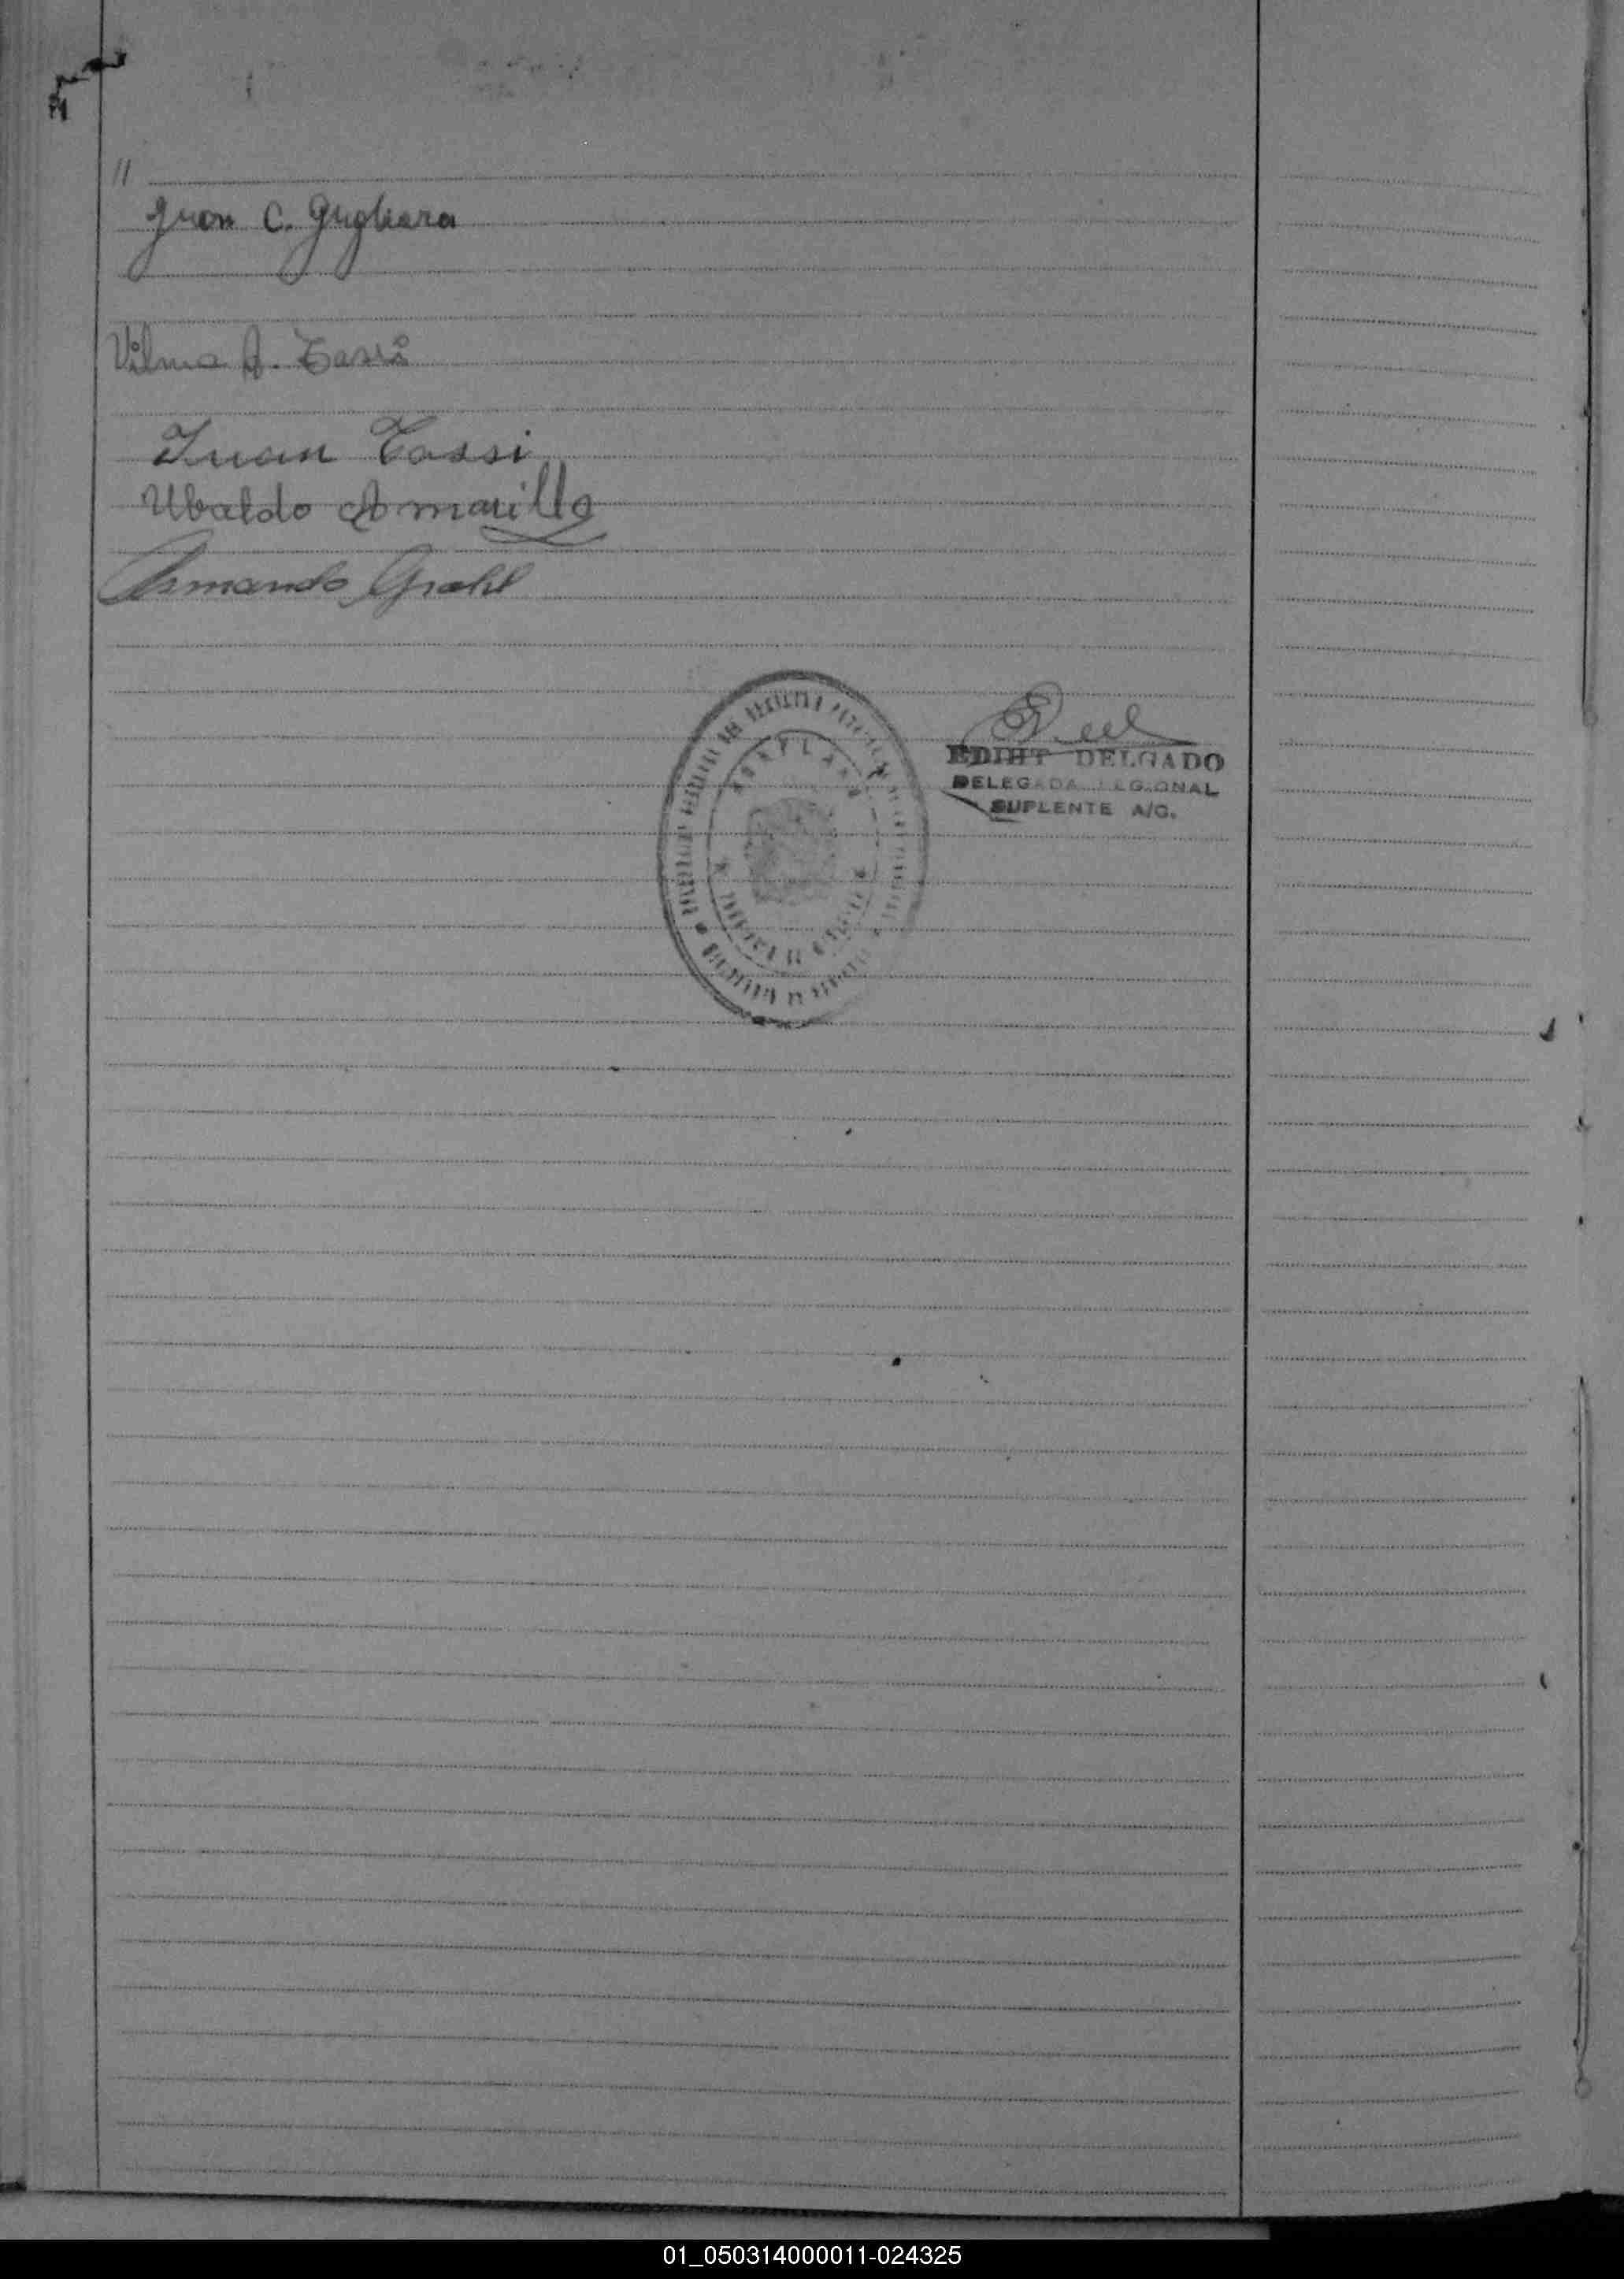 //
Juan C. Gugliara
Vilma A. Tassi
Juan Tassi
Ubaldo Amarilla
Armando Grahl
EDIHT DELGADO
DELEGADA REGIONAL
SUPLENTE A/C.
01_050314000011-024325